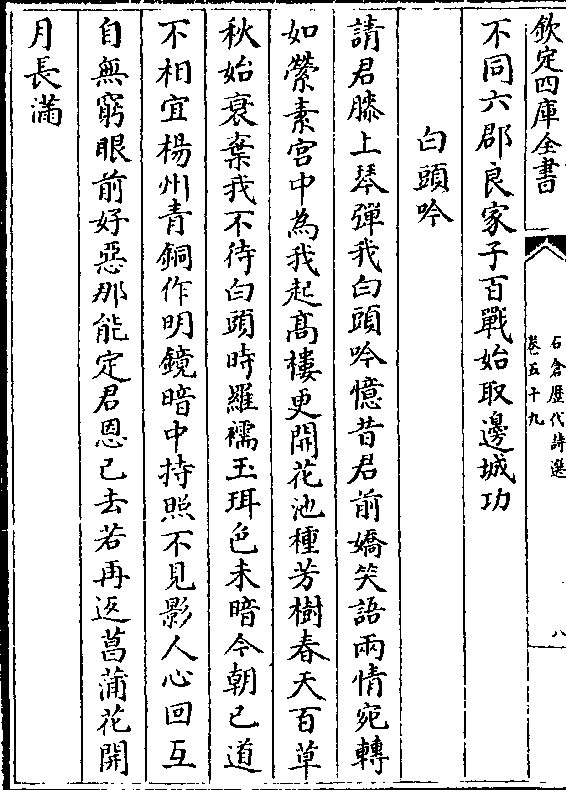 欽定四庫全書
石倉歷代詩選
卷五十九
八
不同六郡良家子百戰始取邊城功
白頭吟
請君膝上琴彈我白頭吟憶昔君前嬌笑語兩情宛轉
如縈素宮中為我起髙樓更開花池種芳樹春天百草
秋始衰棄我不待白頭時羅襦玉珥色未暗今朝已道
不相宜楊州青銅作明鏡暗中持照不見影人心回互
自無窮眼前好惡那能定君恩已去若再返菖蒲花開
月長滿